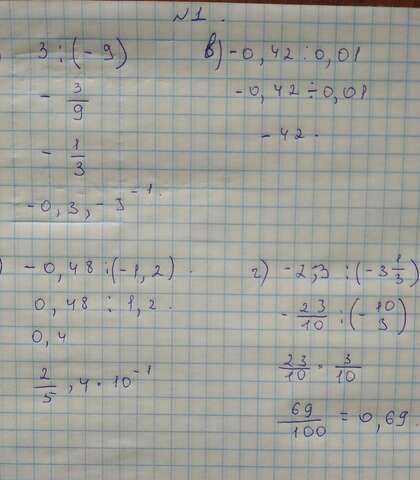 №1.
3 : (-9)
- 3/9
- 1/3
-0,3, -3⁻¹.
в) -0,42 : 0,01
-0,42 ÷ 0,01
-42.
) -0,48 : (-1,2).
0,48 : 1,2.
0,4
2/5, 4·10⁻¹
г) -2,3 : (-3 1/3)
- 23/10 : (- 10/3)
23/10 · 3/10
69/100 = 0,69.